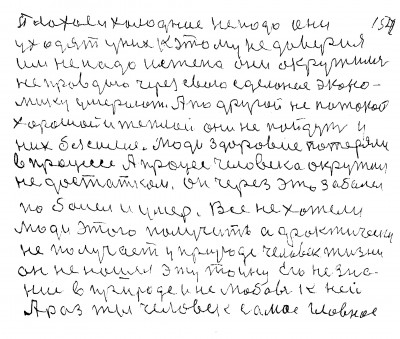 Плохое и холодное не надо они 1521
уходят у них к этому недоверия
им не надо истена они окружили
неправдою через свою сделаное эконо-
мику умерают. А по другой не потокой
хорошой и теплой они не пойдут у
них бессилие. Люди здоровие потеряли
в процессе А процес человека окружил
недостатком. он через это забалел
поболел и умер. Все не хотели
люди этого получить а практически
не получает у природе человек жизни
он не нашел эту тайну Его незна-
ние в природе и не любовь к ней
А раз жил человек самое главное